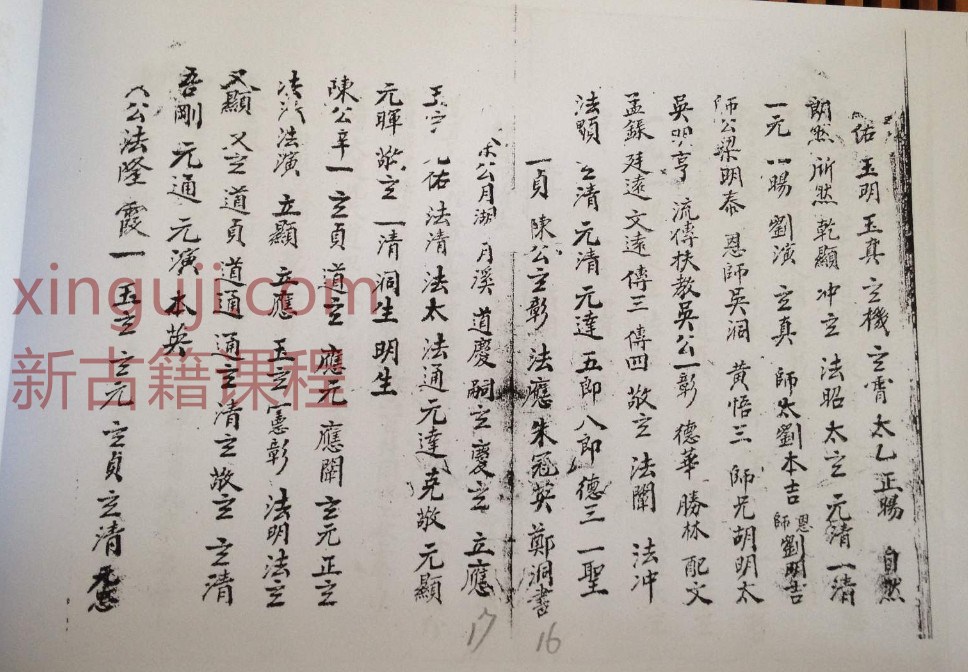 佑 玉明 玉真 立機 立霄 太乙 正暘 自然
朗然 所然 乾顯 冲立 法昭 太立 元清 一清
一元 一暘 劉演 立真 師太劉本吉 恩師劉明吉
師公梁明泰 恩師吴洞 黄悟三 師兄胡明太
吴明亨 流傳扶教吴公一彰 德華 勝林 配文
孟錄 廷遠 文達 傳三 傳四 敬立 法闡 法冲
法顯 立清 元清 元達 五郎 八郎 德三 一聖
一貞 陳公立彰 法應 朱冠英 鄭洞書
公月湖 月溪 道慶 嗣立 慶立 立應
玉 佑 法清 法太 法通 元達 克敬 元顯
元暉 敬立 一清 洞生 明生
陳公辛一 立貞 道立 應元 應闡 立元 正立
法 法演 立顯 立應 玉立 憲彰 法明 法立
又顯 又立 道貞 道通 通立 清立 敬立 立清
吾剛 元通 元演 本英
公法隆 霞一 五立 立元 立貞 立清
17
16
xinguji.com
新古籍课程